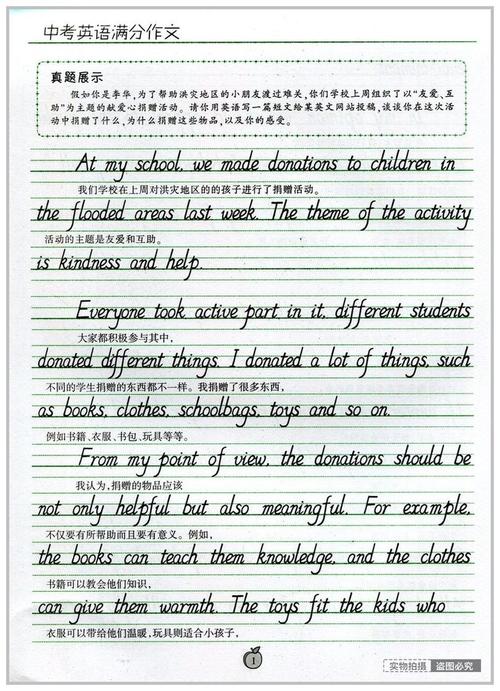 中考英语满分作文
真题展示
假如你是李华,为了帮助洪灾地区的小朋友渡过难关,你们学校上周组织了以“友爱、互
助”为主题的献爱心捐赠活动。请你用英语写一篇短文给某英文网站投稿,谈谈你在这次活
动中捐赠了什么,为什么捐赠这些物品,以及你的感受。
At my school, we made donations to children in
我们学校在上周对洪灾地区的的孩子进行了捐赠活动。
the flooded areas last week. The theme of the activity
活动的主题是友爱和互助。
is kindness and help.
Everyone took active part in it, different students
大家都积极参与其中,
donated different things. I donated a lot of things, such
不同的学生捐赠的东西都不一样。我捐赠了很多东西,
as books, clothes, schoolbags, toys and so on.
例如书籍、衣服、书包、玩具等等。
From my point of view, the donations should be
我认为,捐赠的物品应该
not only helpful but also meaningful. For example,
不仅要有所帮助而且要有意义。例如,
the books can teach them knowledge, and the clothes
书籍可以教会他们知识,
can give them warmth. The toys fit the kids who
衣服可以带给他们温暖,玩具则适合小孩子,
1
实物拍摄 盗图必究